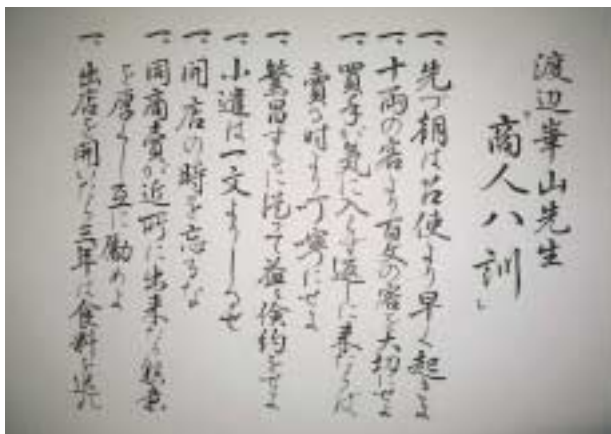 渡辺崋山先生
「商人八訓」
一、先づ朝は召使より早く起きよ
一、十両の客より百文の客を大切にせよ
一、買手が気に入らず返しに来たらば
賣る時より丁寧にせよ
一、繁昌するに従って益々倹約をせよ
一、小遣は一文よりしるせ
一、開店の時を忘るな
一、同商賣が近所に出来たら懇意
を厚くし互に励めよ
一、出店を開いたら三年は食料を送れ